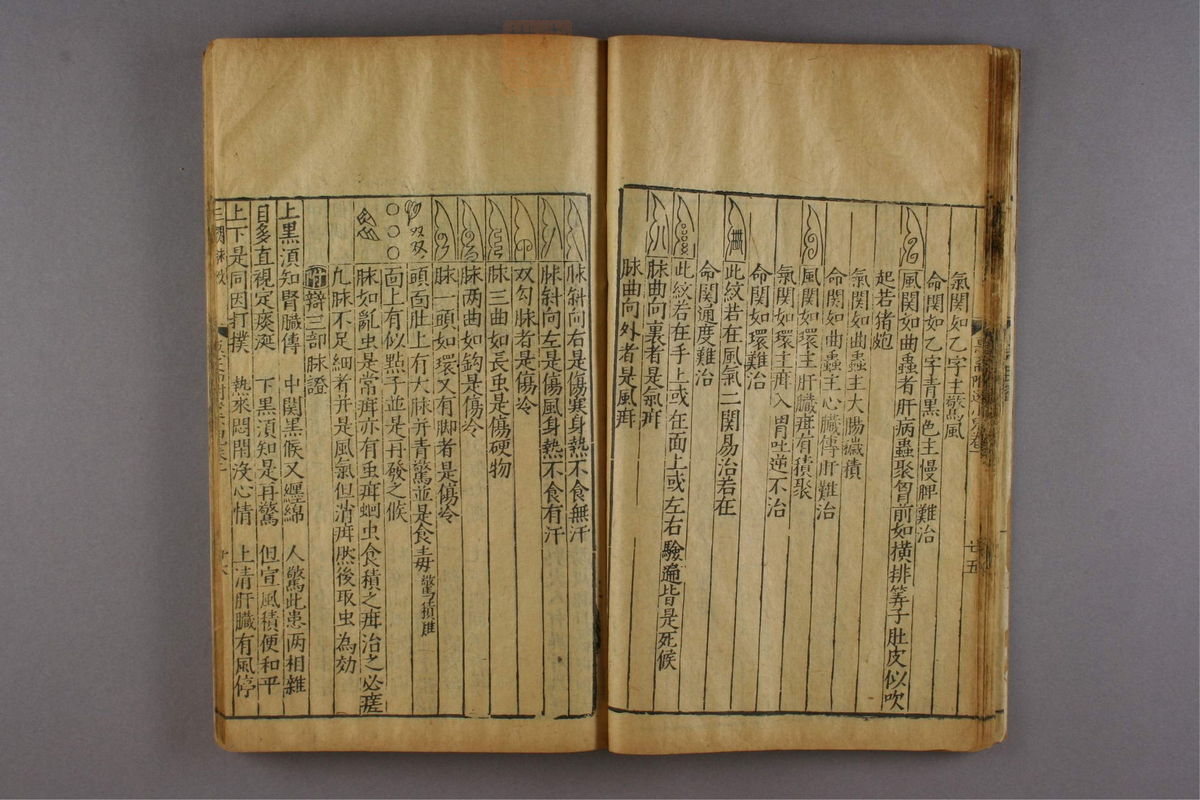 氣関如乙字主驚風
命関如乙字青黒色主慢脾難治
風関如曲蟲者肝病蟲聚胷前如橫排筭子肚皮似吹
起若猪皰
氣関如曲蟲主大腸穢積
命関如曲蟲主心臓傳肝難治
風関如環主肝臓疳有積聚
氣関如環主疳入胃吐逆不治
命関如環難治
此紋若在風氣二関易治若在
命関通度難治
此紋若在手上或在面上或左右驗遍皆是死候
脉曲向裏者是氣疳
脉曲向外者是風疳
廿五
脉斜向右是傷寒身熱不食無汗
脉斜向左是傷風身熱不食有汗
双勾脉者是傷冷
脉三曲如長虫是傷硬物
脉两曲如鈎是傷冷
脉一頭如環又有脚者是傷冷
頭面肚上有大脉并青驚並是食毒驚積
面上有似點子並是再發之候
脉如亂虫是常疳亦有虫疳蛔虫食積之疳治之必瘥
九脉不足細者并是風氣但消疳然後取虫為効
附辯三部脉證
上黒須知腎臓傳 中関黒候又纏綿 人驚此患两相雜
目多直視定痰涎 下黒須知是再驚 但宣風積便和平
上下是同因打撲 熱來悶閙沒心情 上青肝臓有風停